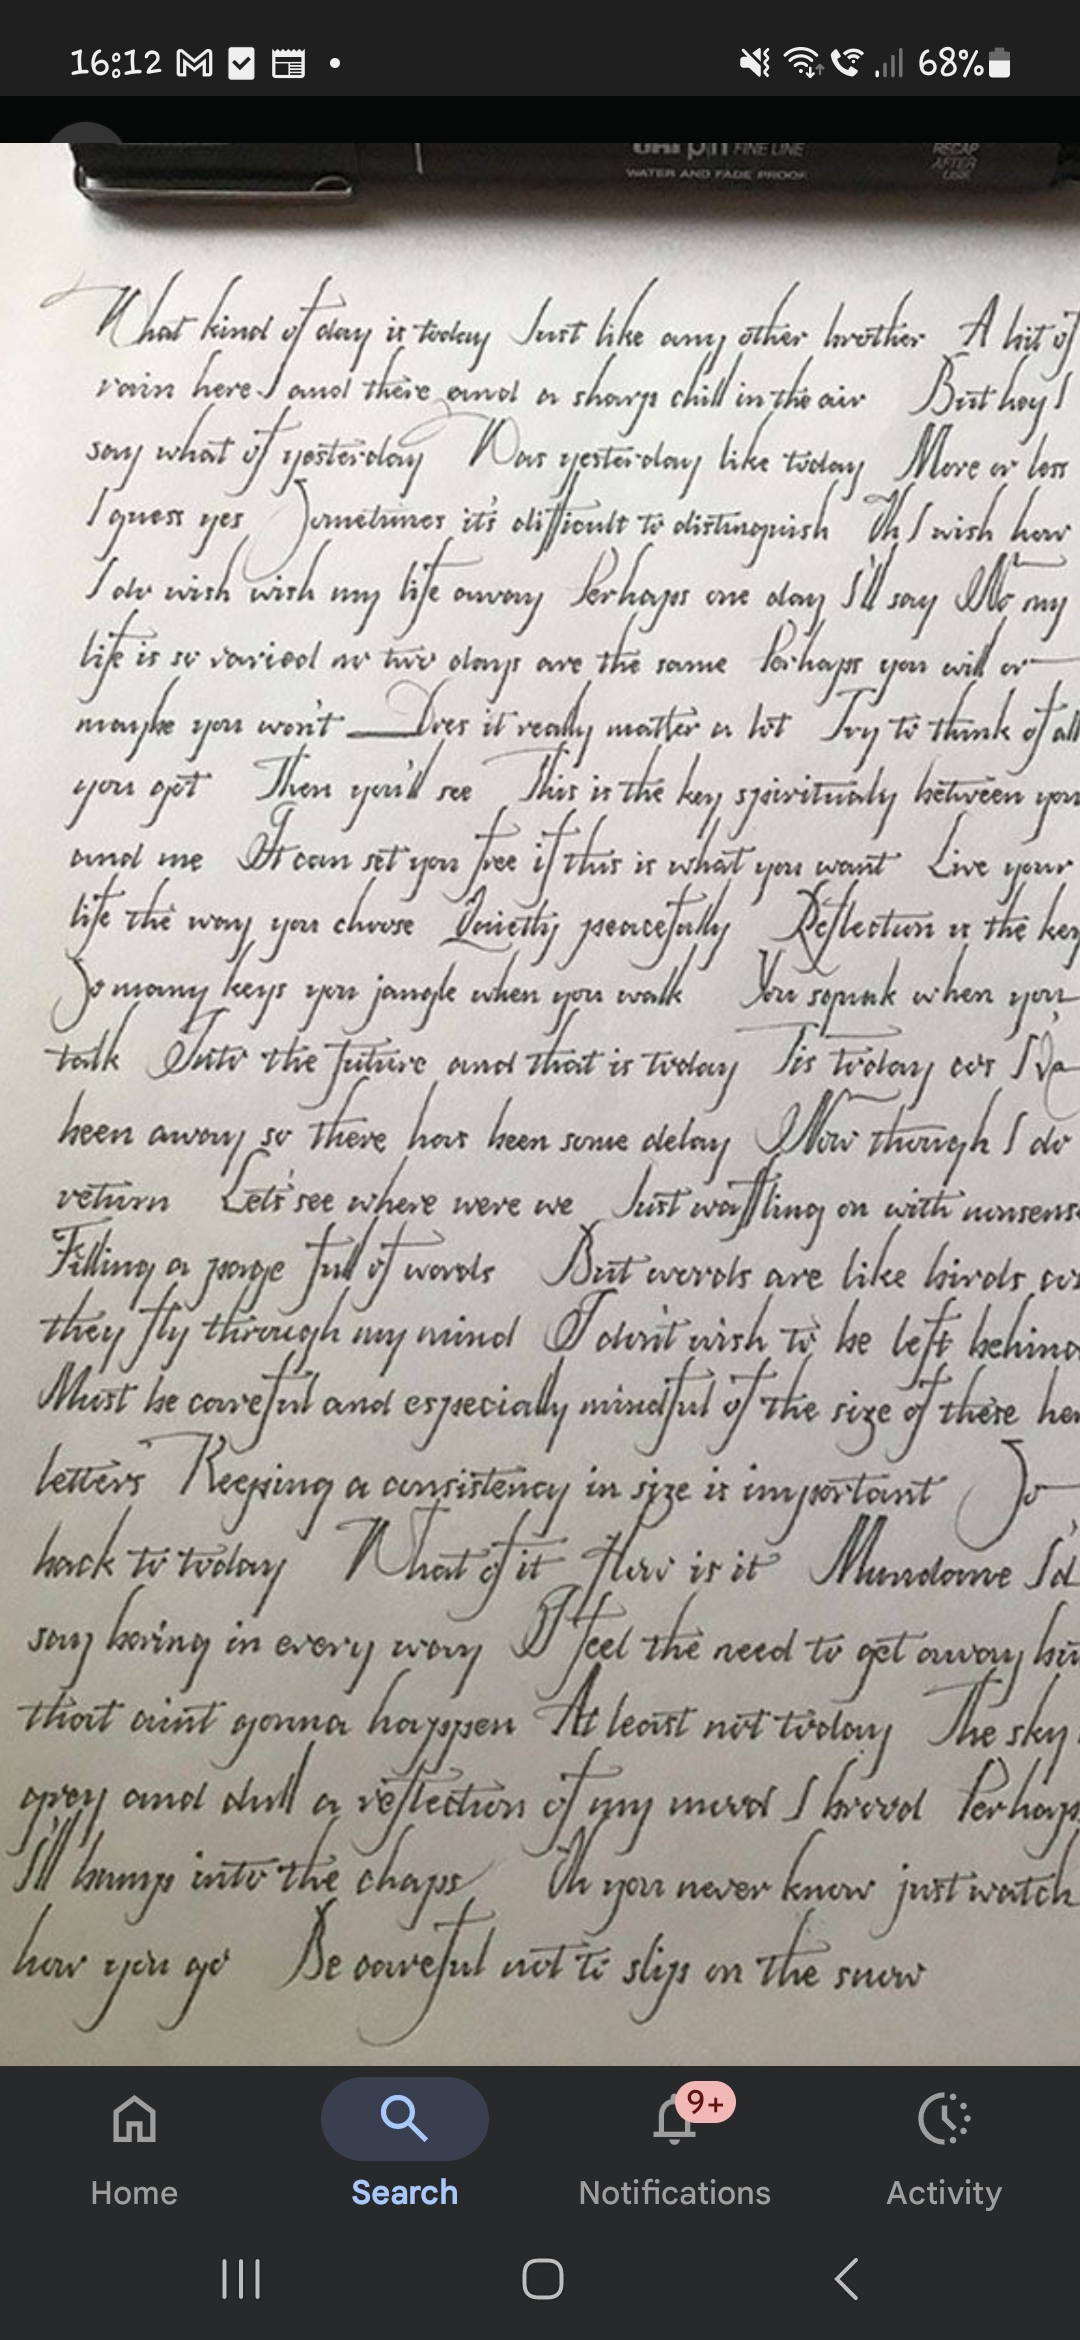 16:12
68%
uni pin FINE LINE
WATER AND FADE PROOF
RECAP
AFTER
USE
What kind of day is today Just like any other brother A bit of
rain here & and there and a sharp chill in the air But hey I
say what of yesterday Was yesterday like today More or less
I guess yes Sometimes it's difficult to distinguish Oh I wish how
I do wish wish my life away Perhaps one day I'll say No my
life is so varied no two days are the same Perhaps you will or
maybe you won't Does it really matter a lot Try to think of all
you got Then you'll see This is the key spiritualy between you
and me It can set you free if this is what you want Live your
life the way you choose Quietly peacefully Reflection is the key
So many keys you jangle when you walk You squeak when you
talk Into the future and that is today Tis today cos I've
been away so there has been some delay Now though I do
return Let's see where were we Just waffling on with nonsens
Filling a page full of words But words are like birds cos
they fly through my mind I don't wish to be left behind
Must be careful and especially mindful of the size of these her
letters Keeping a consistency in size is important So
back to today What of it How is it Mundane I'd
say boring in every way I feel the need to get away bu
that aint gonna happen At least not today The sky
grey and dull a reflection of my mood I brood Perhaps
I'll bump into the chaps Oh you never know just watch
how you go Be careful not to slip on the snow
Home
Search
9+
Notifications
Activity